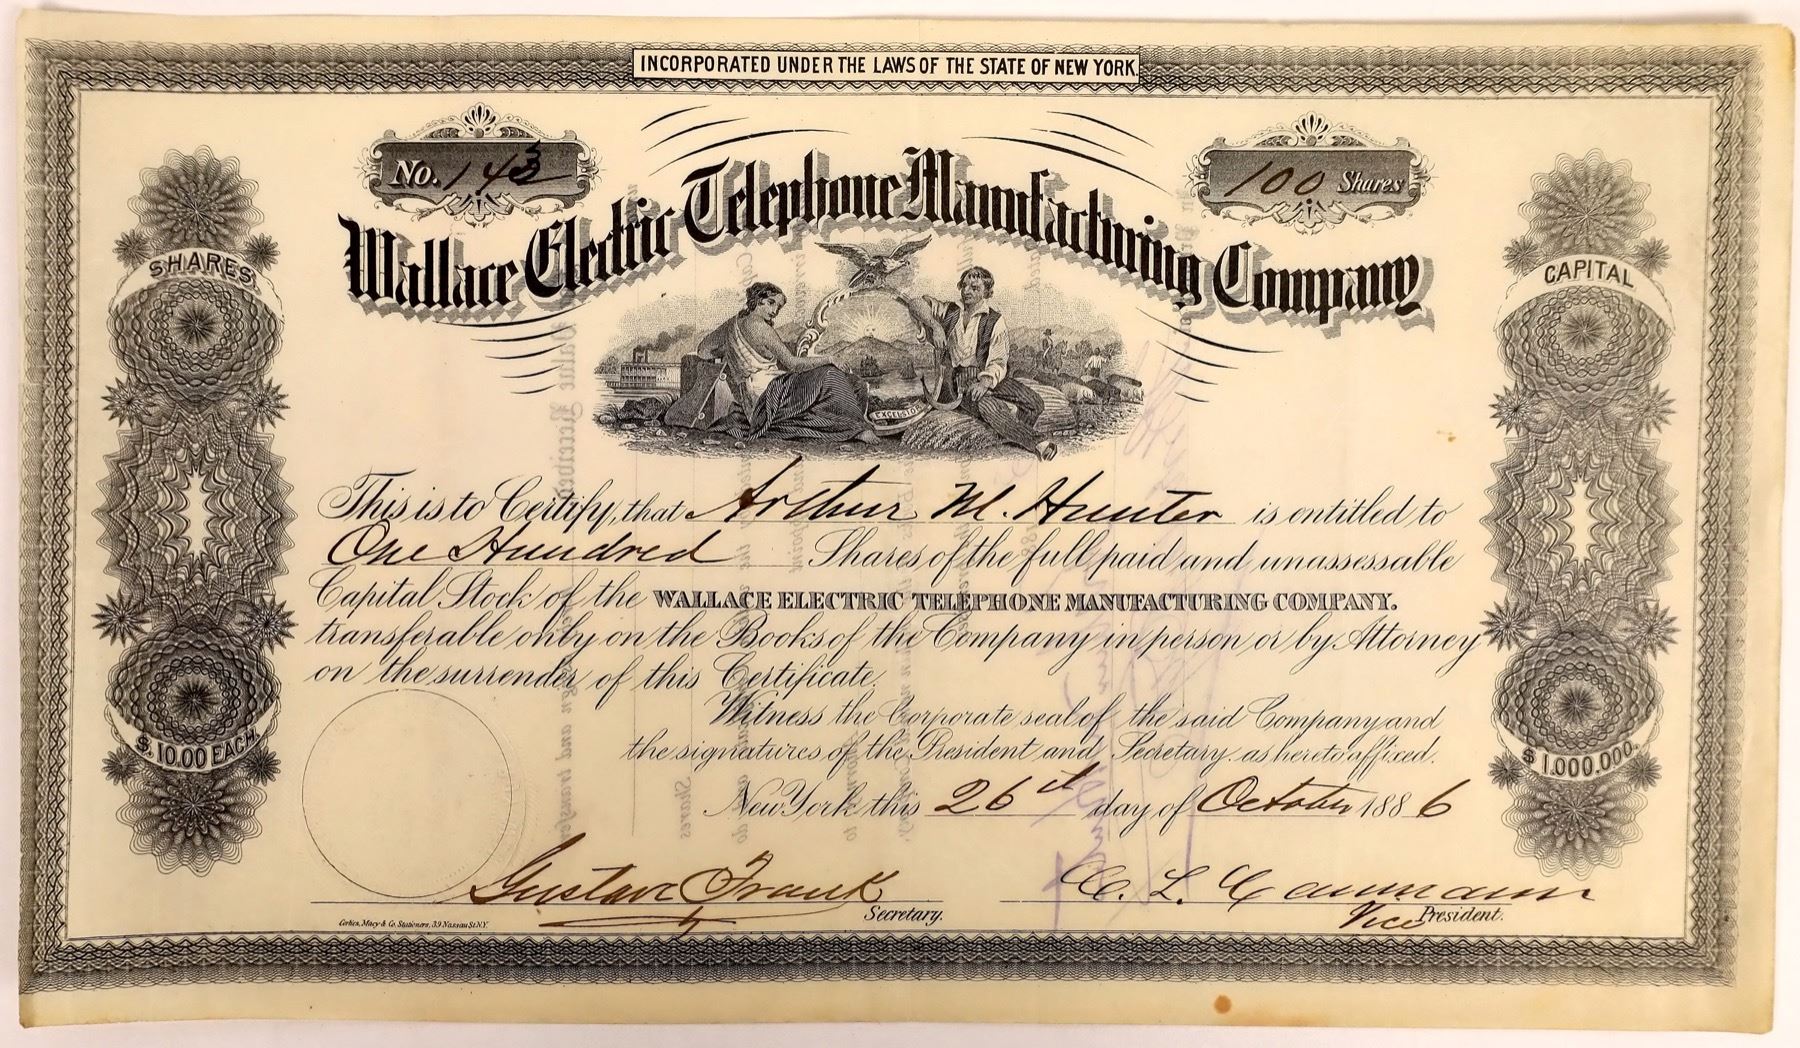 INCORPORATED UNDER THE LAWS OF THE STATE OF NEW YORK.
No. 143
100 Shares
Wallace Electric Telephone Manufacturing Company
SHARES
CAPITAL
EXCELSIOR
This is to Certify, that Arthur M. Hunter is entitled to
One Hundred Shares of the full paid and unassessable
Capital Stock of the WALLACE ELECTRIC TELEPHONE MANUFACTURING COMPANY.
transferable only on the Books of the Company in person or by Attorney
on the surrender of this Certificate.
Witness the Corporate seal of the said Company and
the signatures of the President and Secretary. as hereto affixed.
$.10.00 EACH.
$1.000.000.
New York this 26th day of October 1886
Gustave Frank
Secretary.
Vice President.
Corlies, Macy & Co. Stationers, 39 Nassau St. N.Y.